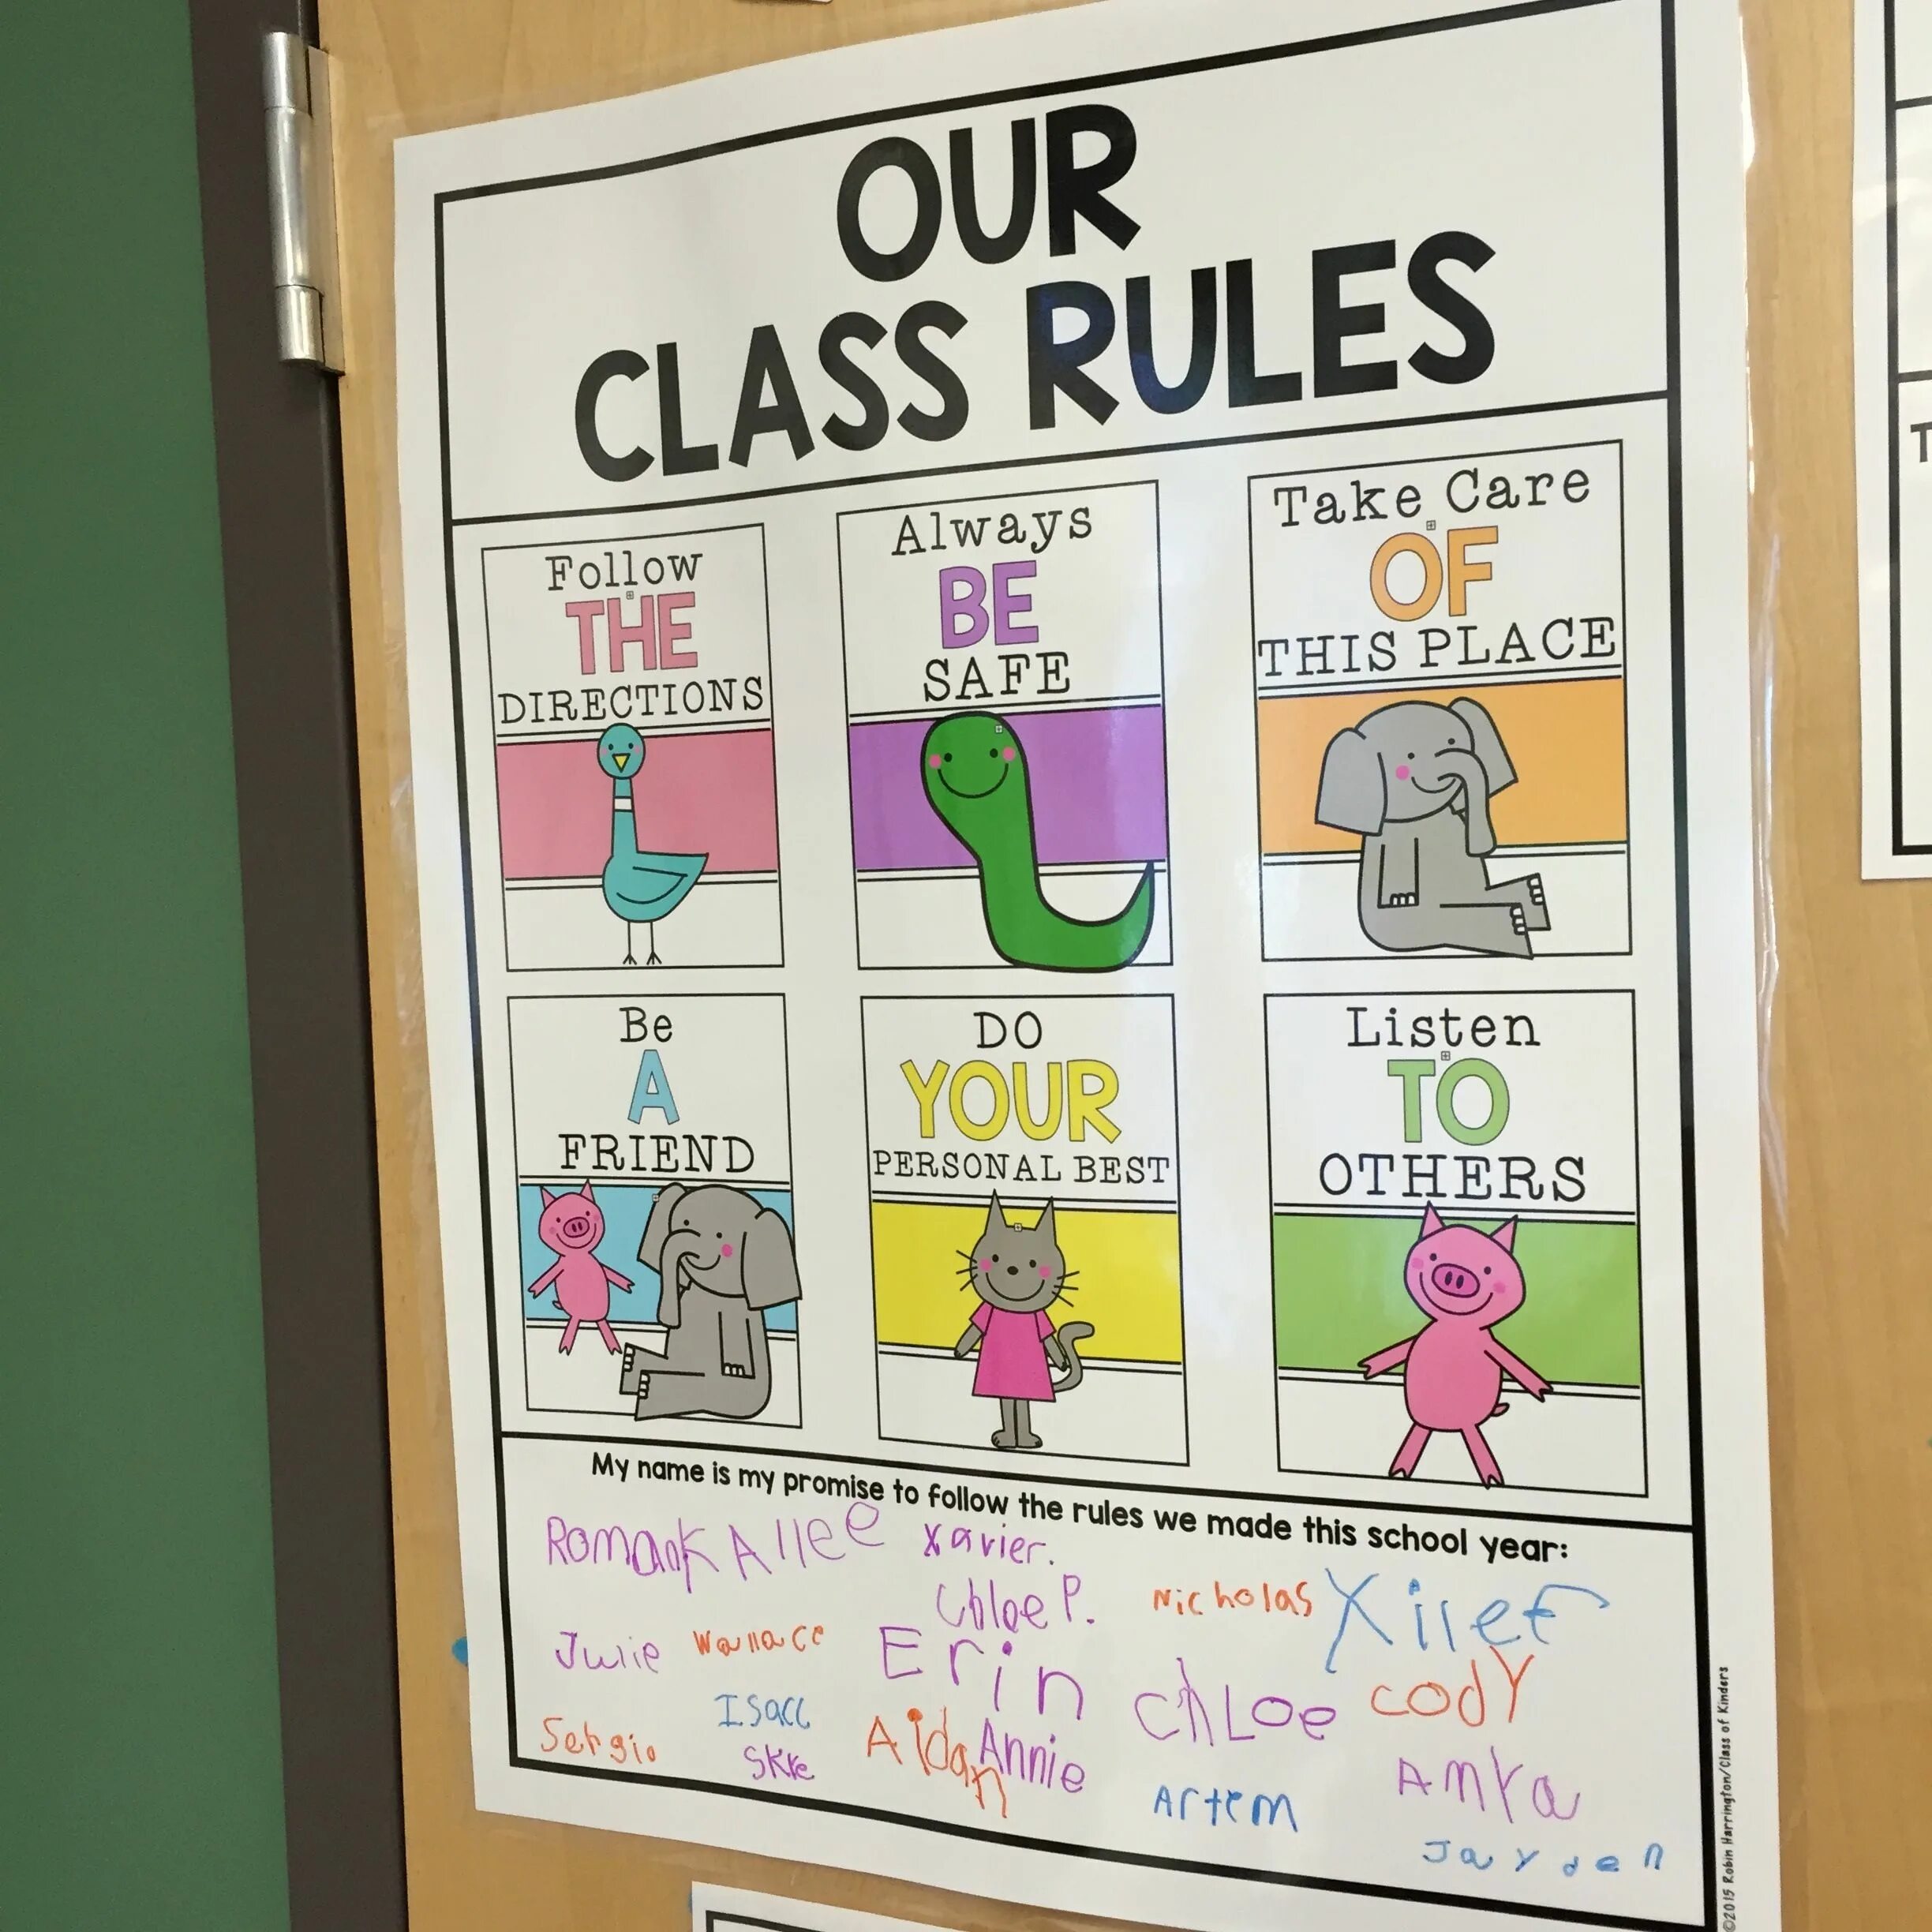 OUR
CLASS RULES
Follow
THE
DIRECTIONS
Always
BE
SAFE
Take Care
OF
THIS PLACE
Be
A
FRIEND
DO
YOUR
PERSONAL BEST
Listen
TO
OTHERS
My name is my promise to follow the rules we made this school year:
Allee Xavier.
Chloe P. Nicholas
Julie Wallace Erin ChLoe codY
Isacc
Sergio Aidan Annie
Artem
Jayden
©2015 Robin Harrington/Class of Kinders
T